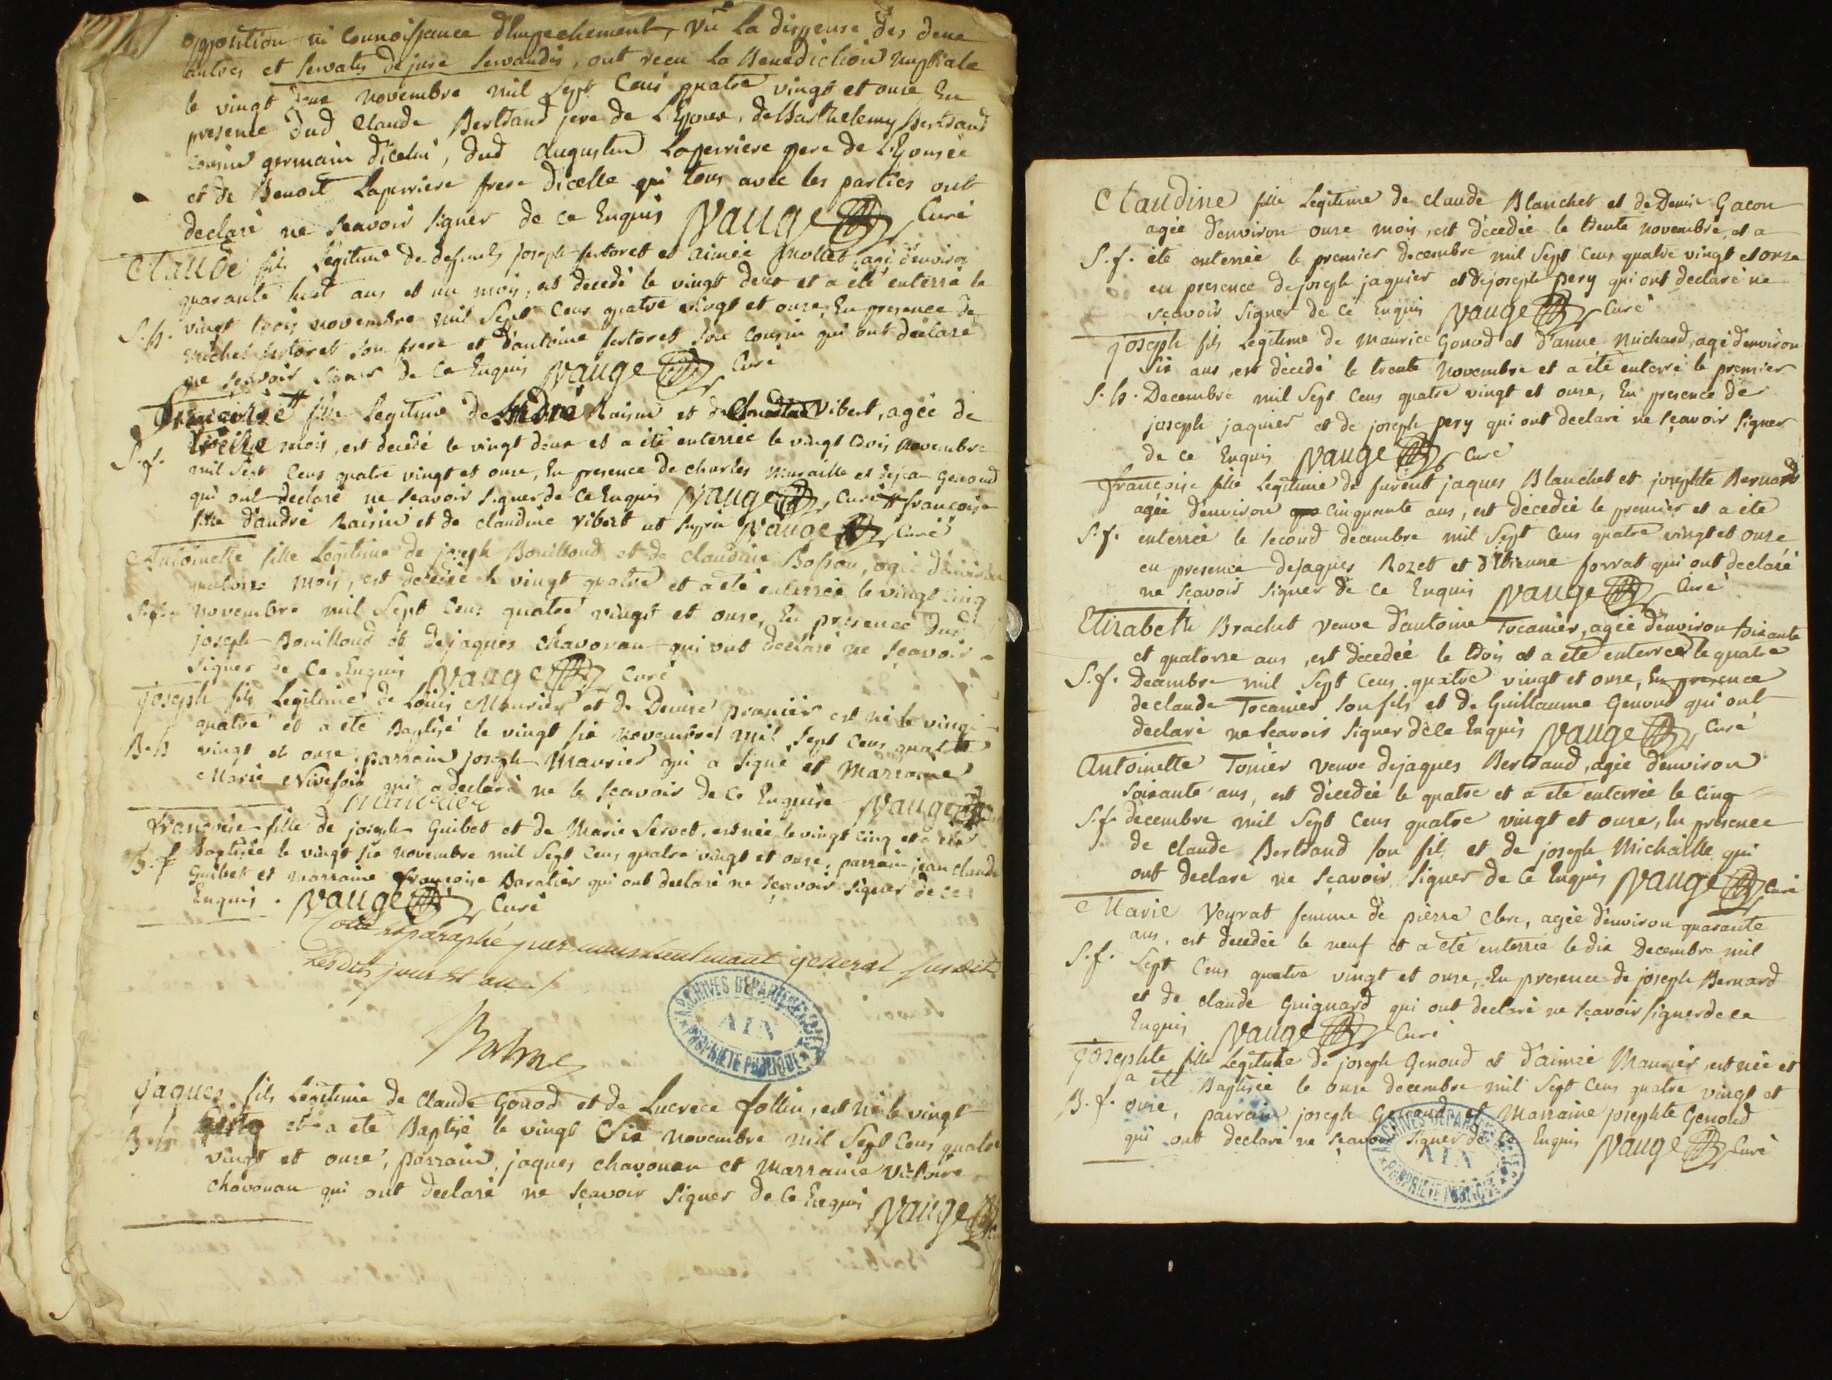 opposition ni connoissance d'Empechement, vû la dispense des deux
autres et servatis de jure servandis, ont recu la Benediction nuptiale
le vingt deux novembre mil Sept Cens quatre vingt et onze En
presence dud Claude Bertrand pere de L'Epoux, de Barthelemy Bertrand
cousin germain d'icelui, dud Augustin Laperriere pere de L'Epousée
et de Benoit Laperriere frere d'icelle qui tous avec les parties ont
declaré ne sçavoir signer de ce Enquis Vauge Curé
Claude fils Légitime de defunts joseph fertoret et aimée Mollet, agé d'environ
quarante huit ans et un mois, est decedé le vingt deux et a été enterré le
S. h. vingt trois novembre mil Sept Cens quatre vingt et onze, En presence de
michel fertoret son frere et d'antoine fertoret son cousin qui ont declaré
ne sçavoir signer de Ce Enquis Vauge Curé
Françoise fille Legitime de André Raisin et de Claudine Vibert, agée de
treize mois, est decedée le vingt deux et a été enterrée le vingt trois novembre
S. f. mil Sept Cens quatre vingt et onze, En presence de charles muraille et Genoud
qui ont declaré ne sçavoir signer de Ce Enquis Vauge Curé # françoise
fille d'andré Raisin et de claudine Vibert ut supra Vauge Curé
Antoinette fille Legitime de joseph Bouilloud et de claudine Bossou, agée d'environ
quatorze mois, est decedée le vingt quatre et a été enterrée le vingt cinq
S. f. novembre mil Sept Cens quatre vingt et onze, En presence Dud
joseph Bouilloud et de jaques Chavouan qui ont declaré ne sçavoir
signer de Ce Enquis Vauge Curé
joseph fils Légitime de Louis Maurier et de Denise pramier est né le vingt
quatre et a été Baptisé le vingt six novembre mil Sept Cens quatre
B. h vingt et onze, parrain joseph Maurier qui a signé et Marraine
Marie qui a declaré ne le sçavoir de Ce Enquise Vauge
Maurier
françoise fille de joseph Guibet et de Marie Servet, est née le vingt cinq et a été
B. f Baptisée le vingt six novembre mil Sept Cens quatre vingt et onze, parrain jean claude
Guibet et marraine françoise Baralier qui ont declaré ne sçavoir signer de Ce
Enquis. Vauge Curé
Cotté et paraphé par nous Lieutenant general susdit
Lesdits jour et an

jaques fils Légitime de Claude Gonod et de Lucrece follin, est né le vingt
B. h. cinq et a été Baptisé le vingt Six novembre mil Sept Cens quatre
vingt et onze, parrain, jaques chavouan et Marraine Victoire
chavouan qui ont declaré ne sçavoir signer de Ce Enquis Vauge
Claudine fille Légitime de claude Blanchet et de Denise Gacon
agée d'environ onze mois, est décedée le trente novembre, et a
S. f. été enterrée le premier decembre mil Sept Cens quatre vingt et onze
en presence de joseph jaquier et de joseph pery qui ont declaré ne
sçavoir signer de Ce Enquis Vauge Curé
joseph fils Legitime de maurice Gonod et d'anne Michard, agé d'environ
six ans, est décedé le trente Novembre et a été enterré le premier
S. h. Decembre mil Sept Cens quatre vingt et onze, En presence de
joseph jaquier et de joseph pery qui ont declaré ne sçavoir signer
de Ce Enquis Vauge Curé
françoise fille Legitime de furent jaques Blanchet et josephte Bernard
agée d'environ cinquante ans, est décedée le premier et a été
S. f. enterrée le second decembre mil Sept Cens quatre vingt et onze
en presence de jaques Rozet et d'Etienne forrat qui ont declaré
ne sçavoir signer de Ce Enquis Vauge Curé
Elizabeth Brachet veuve d'antoine Tocanier, agée d'environ soixante
et quatorze ans, est decedée le trois et a été enterrée le quatre
S. f. Decembre mil Sept Cens quatre vingt et onze, En presence
de claude Tocanier son fils et de Guillaume Genoud qui ont
declaré ne sçavoir signer de Ce Enquis Vauge Curé
Antoinette Tonier veuve de jaques Bertrand, agée d'environ
soixante ans, est décedée le quatre et a été enterrée le cinq
S. f. decembre mil Sept Cens quatre vingt et onze, En présence
de claude Bertrand son fils et de joseph Michaille qui
ont declaré ne sçavoir signer de Ce Enquis Vauge Curé
Marie Veyrat femme de pierre Clerc, agée d'environ quarante
ans, est decedée le neuf et a été enterrée le dix Decembre mil
S. f. Sept Cens quatre vingt et onze, En presence de joseph Bernard
et de claude Guignard qui ont declaré ne sçavoir signer de Ce
Enquis Vauge Curé
josephte fille Légitime de joseph Genoud et d'aimée Maurier, est née et
a été Baptisée le onze decembre mil Sept Cens quatre vingt et
B. f. onze, parrain joseph Genoud et Marraine josephte Genoud
qui ont declaré ne sçavoir signer de Ce Enquis Vauge Curé
ARCHIVES DEPARTEMENTALES
AIN
PROPRIETE PUBLIQUE
ARCHIVES DEPARTEMENTALES
AIN
PROPRIETE PUBLIQUE